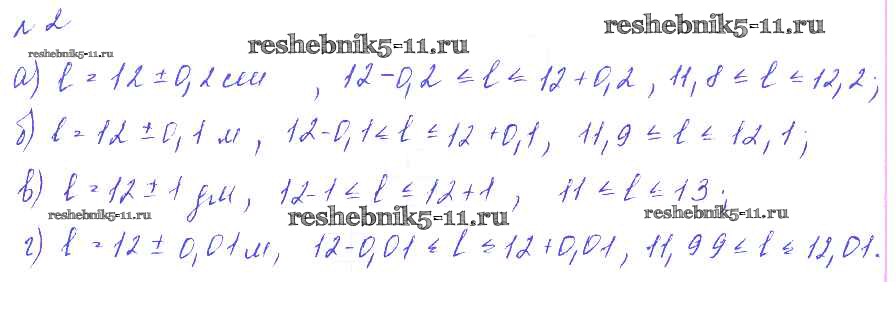 № 2
reshebnik5-11.ru
reshebnik5-11.ru
reshebnik5-11.ru
а) l = 12 ± 0,2 см, 12 - 0,2 ≤ l ≤ 12 + 0,2, 11,8 ≤ l ≤ 12,2;
б) l = 12 ± 0,1 м, 12 - 0,1 ≤ l ≤ 12 + 0,1, 11,9 ≤ l ≤ 12,1;
в) l = 12 ± 1 дм, 12 - 1 ≤ l ≤ 12 + 1, 11 ≤ l ≤ 13;
reshebnik5-11.ru
reshebnik5-11.ru
reshebnik5-11.ru
г) l = 12 ± 0,01 м, 12 - 0,01 ≤ l ≤ 12 + 0,01, 11,99 ≤ l ≤ 12,01.